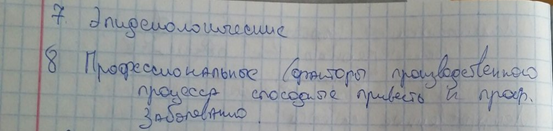 7 Эпидемиологические
8 Профессиональное (факторы производственного
процесса способные привесть к проф.
заболеванию.